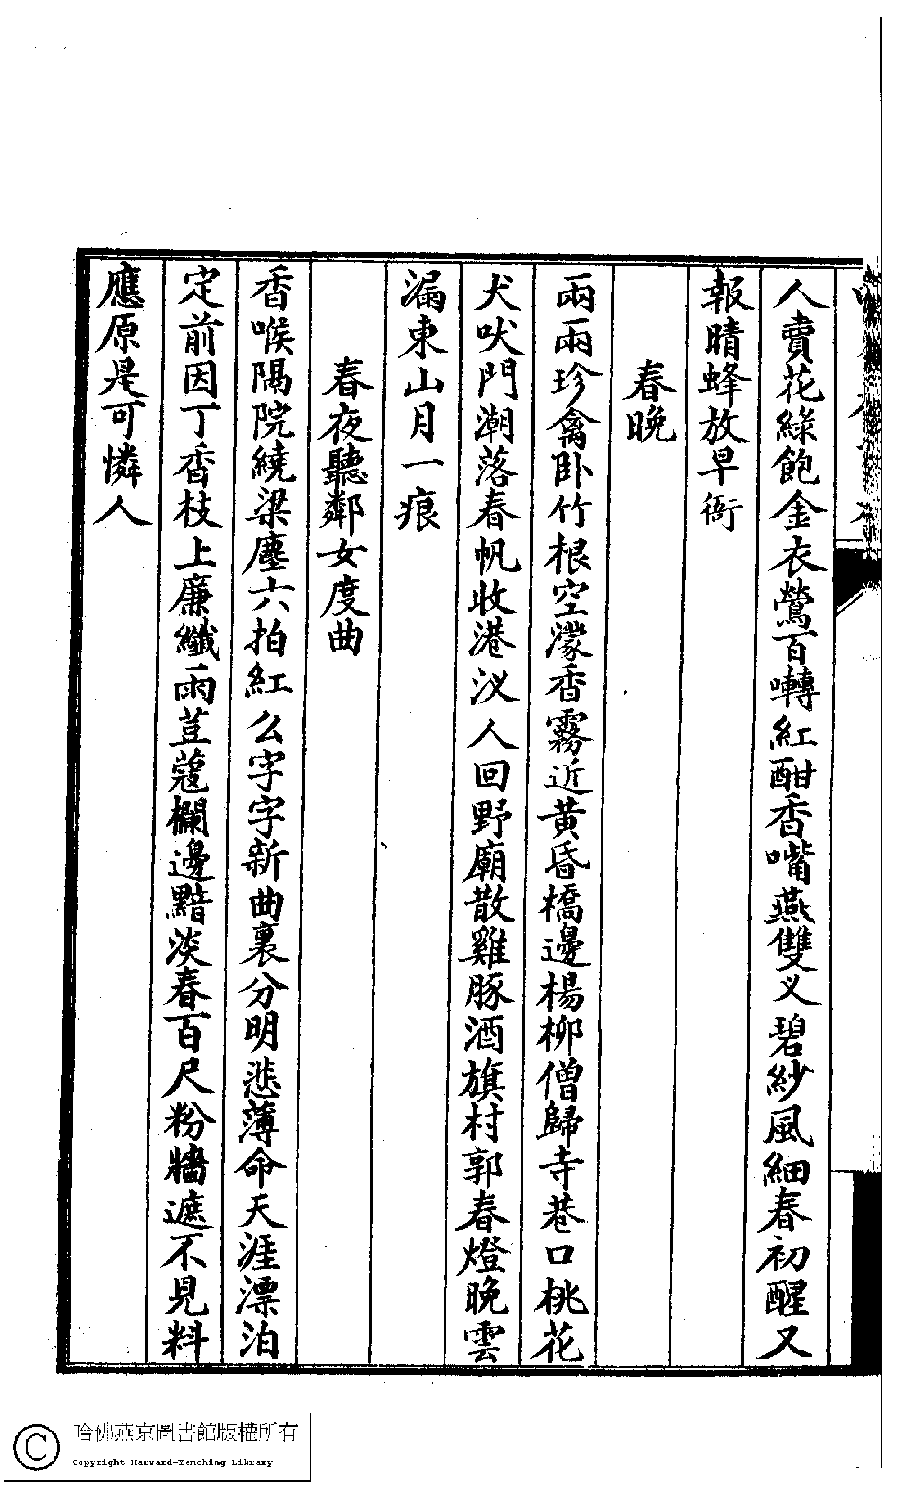 人賣花綠飽金衣鶯百囀紅酣香嘴燕雙乂碧紗風細春初醒又
報晴蜂放早衙
春晚
兩兩珍禽卧竹根空濛香霧近黄昏橋邊楊柳僧歸寺巷口桃花
犬吠門潮落春帆收港汊人回野廟散雞豚酒旗村郭春燈晚雲
漏東山月一痕
春夜聽鄰女度曲
香喉隔院繞梁塵六拍紅么字字新曲裏分明悲薄命天涯漂泊
定前因丁香枝上廉纖雨荳蔻欄邊黯淡春百尺粉牆遮不見料
應原是可憐人
哈佛燕京圖書館版權所有
Copyright Harvard-Yenching Library